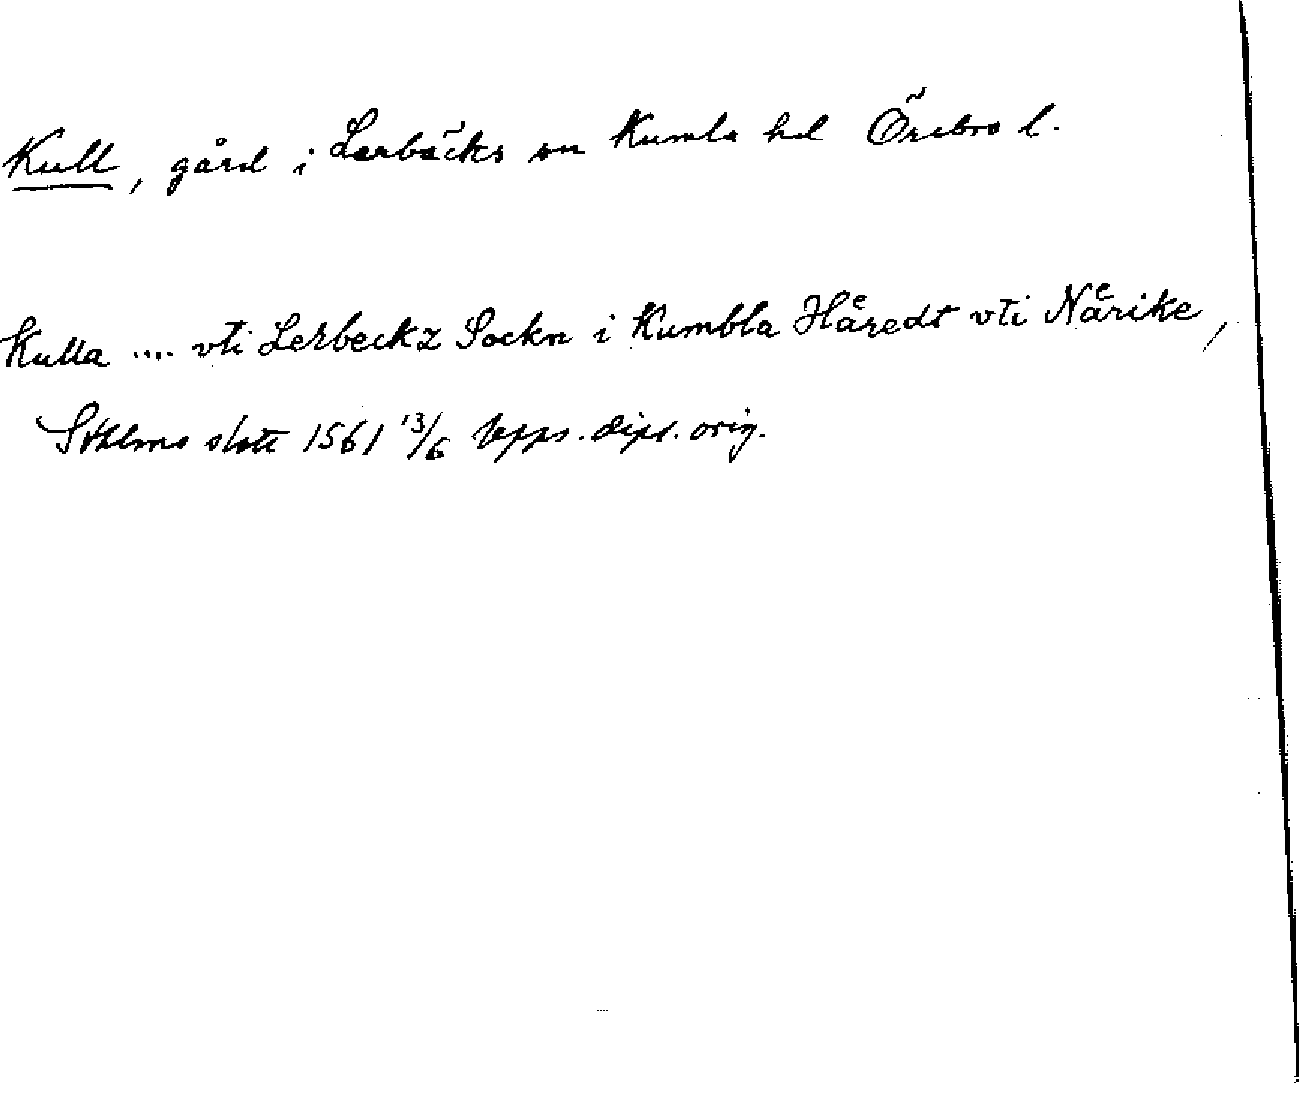 Kull, gård i Lerbäcks sn Kumla hd Örebro l.
Kulla .... vti Lerbeckz Sockn i Kumbla Håͤredt vti Nåͤrike,
Sthlms slott 1561 13/6 Upps. dipl. orig.